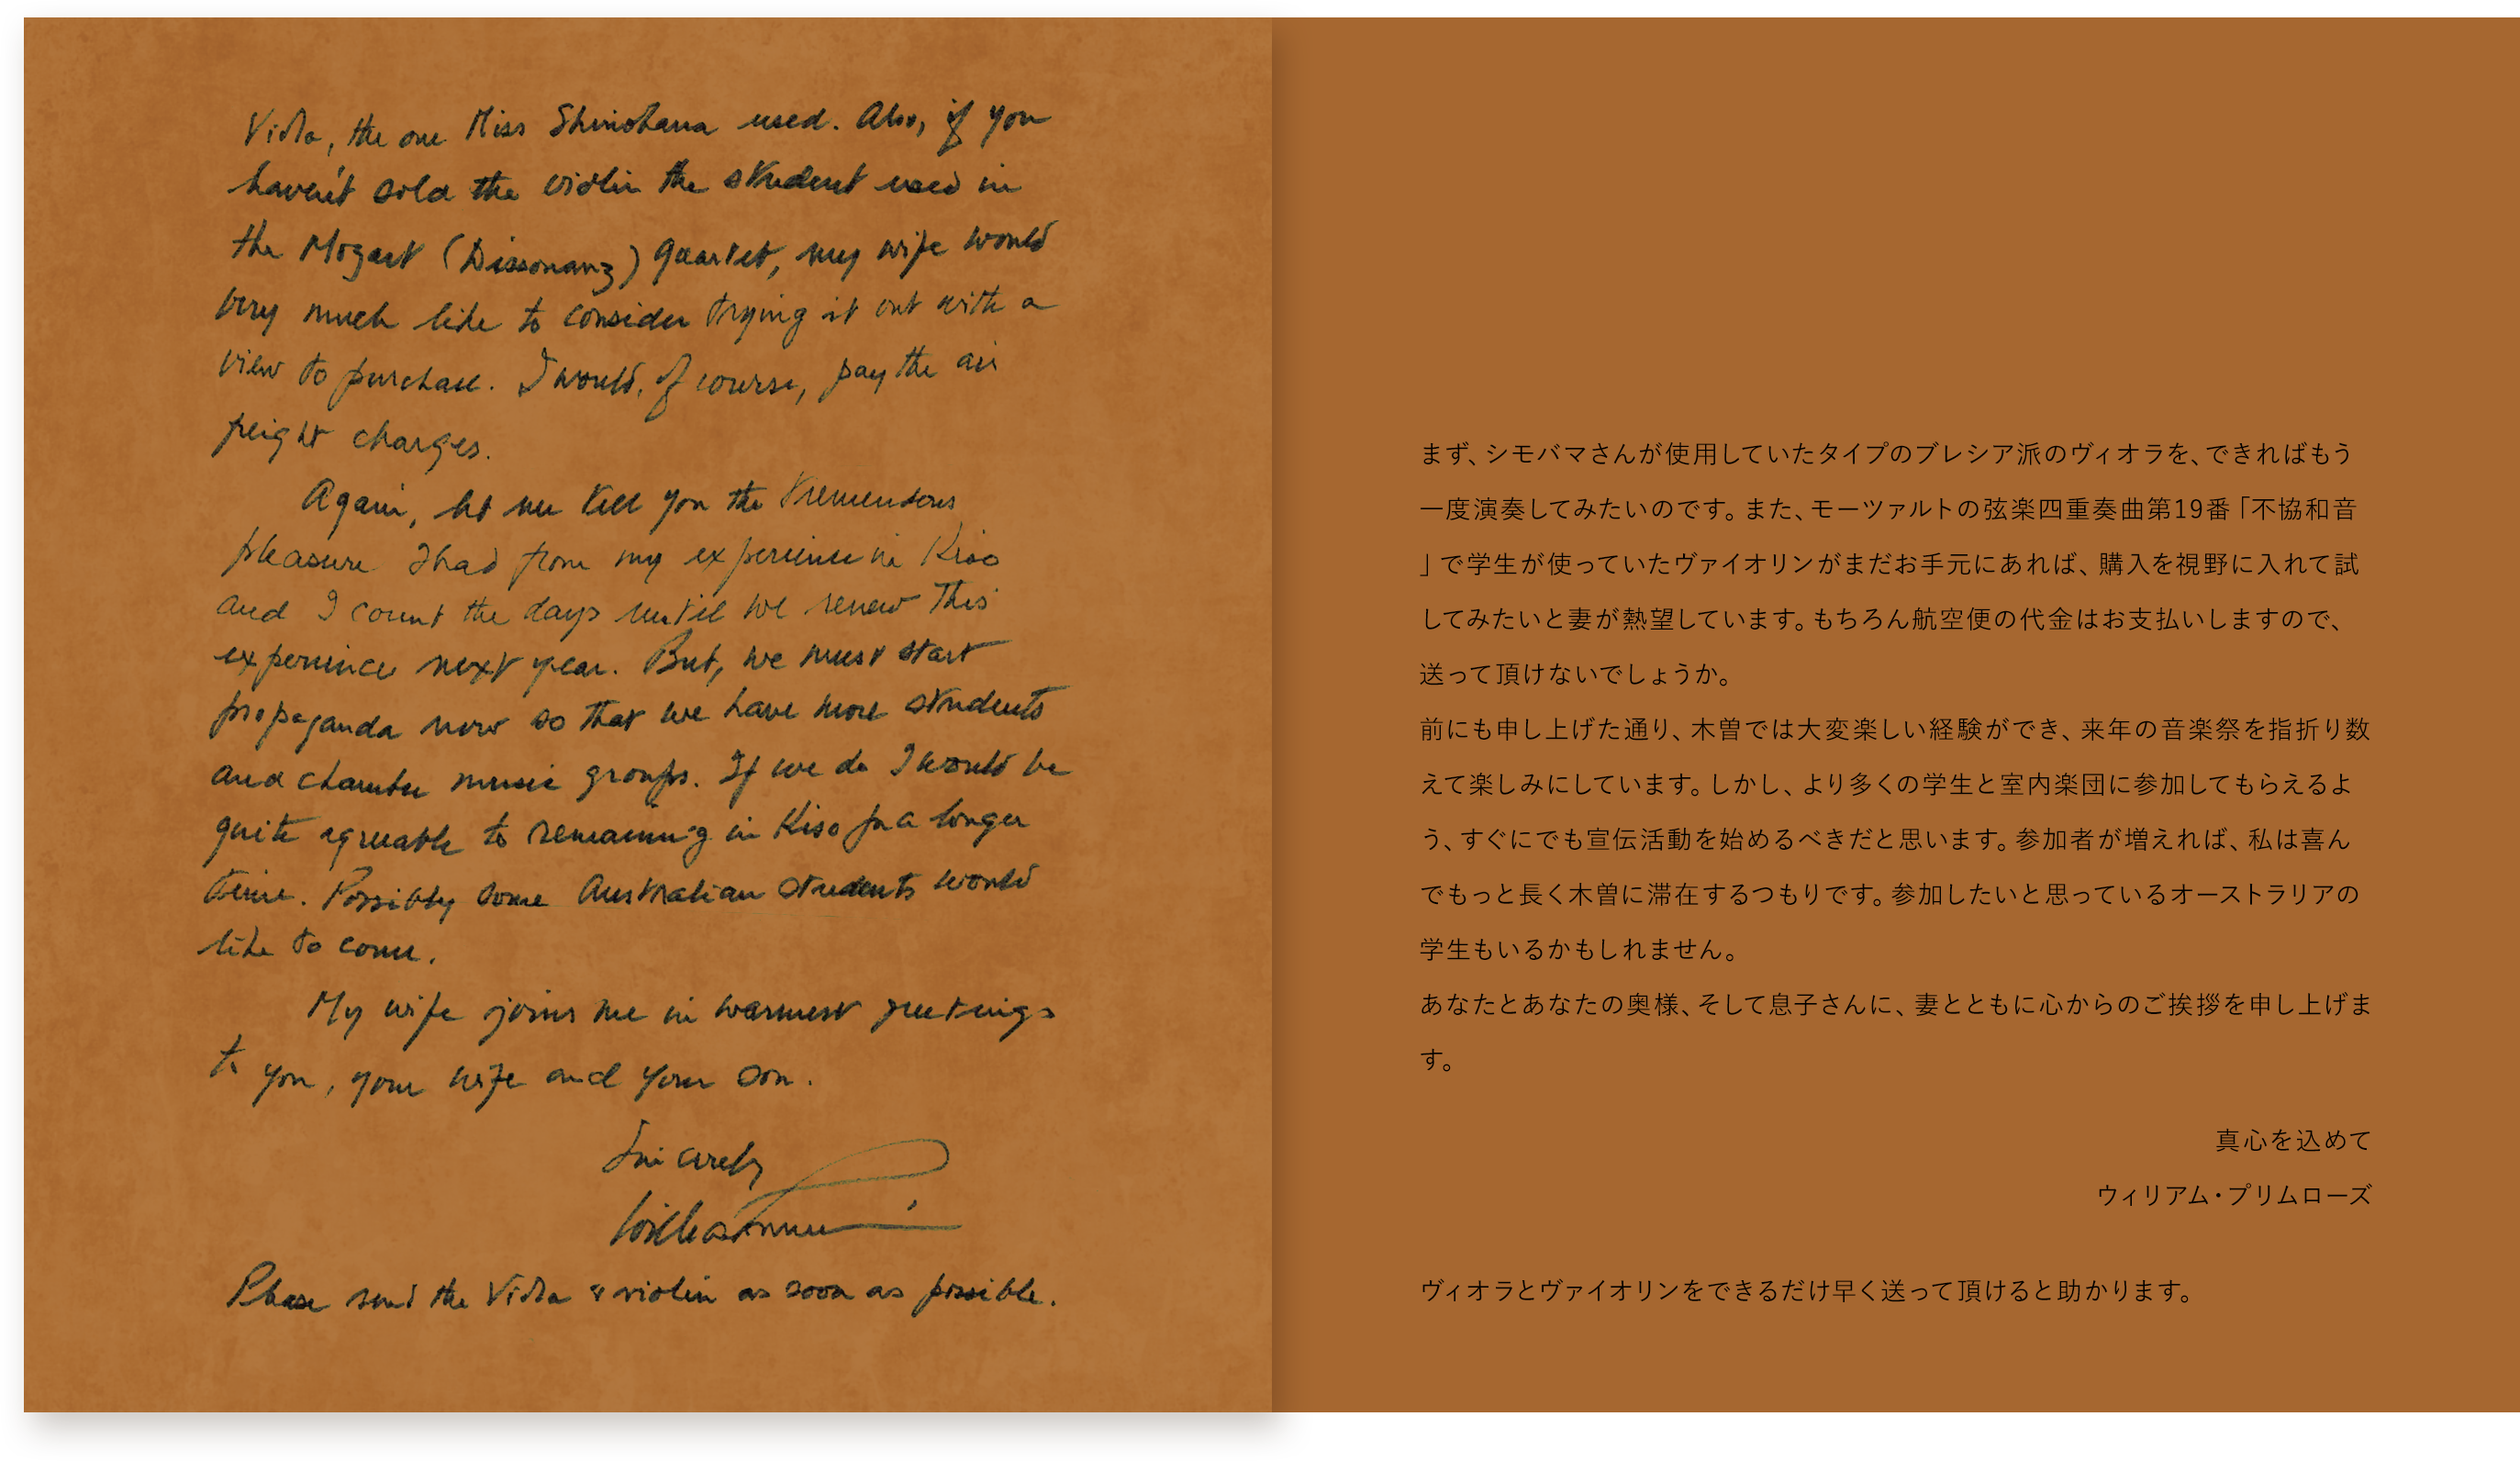 Viola, the one Miss Shinohara used. Also, if you
haven't sold the violin the student used in
the Mozart (Dissonanz) Quartet, my wife would
very much like to consider trying it out with a
view to purchase. I would, of course, pay the air
freight charges.
Again, let me tell you the tremendous
pleasure I had from my experience in Kiso
and I count the days until we renew this
experience next year. But, we must start
propaganda now so that we have more students
and chamber music groups. If we do I would be
quite agreeable to remaining in Kiso for a longer
time. Possibly some Australian students would
like to come.
My wife joins me in warmest greetings
to you, your wife and your son.
Sincerely
William Primrose
Please send the Viola & violin as soon as possible.
まず、シモバマさんが使用していたタイプのブレシア派のヴィオラを、できればもう
一度演奏してみたいのです。また、モーツァルトの弦楽四重奏曲第19番「不協和音
」で学生が使っていたヴァイオリンがまだお手元にあれば、購入を視野に入れて試
してみたいと妻が熱望しています。もちろん航空便の代金はお支払いしますので、
送って頂けないでしょうか。
前にも申し上げた通り、木曽では大変楽しい経験ができ、来年の音楽祭を指折り数
えて楽しみにしています。しかし、より多くの学生と室内楽団に参加してもらえるよ
う、すぐにでも宣伝活動を始めるべきだと思います。参加者が増えれば、私は喜ん
でもっと長く木曽に滞在するつもりです。参加したいと思っているオーストラリアの
学生もいるかもしれません。
あなたとあなたの奥様、そして息子さんに、妻とともに心からのご挨拶を申し上げま
す。
真心を込めて
ウィリアム・プリムローズ
ヴィオラとヴァイオリンをできるだけ早く送って頂けると助かります。